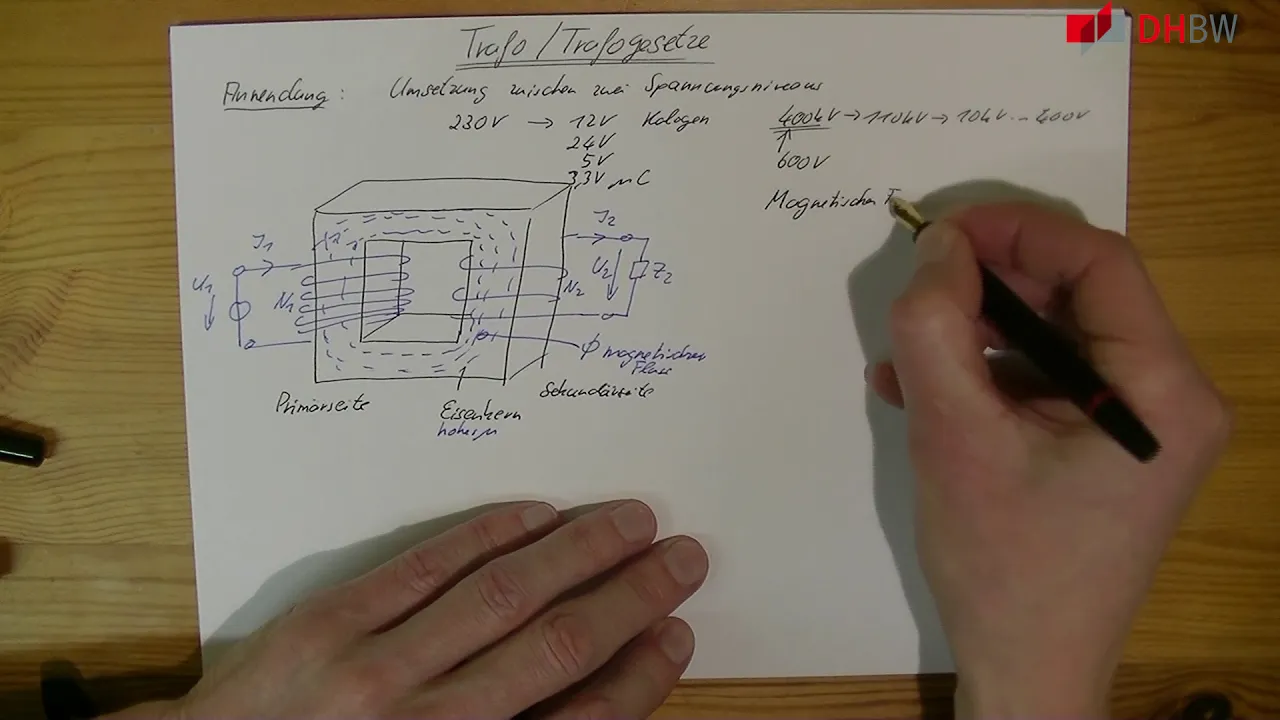 DHBW
Trafo / Trafogesetze
Anwendung: Umsetzung zwischen zwei Spannungsniveaus
230V → 12V Halogen
24V
5V
3,3V µC
400kV → 110kV → 10kV - 400V
↑
600V
Magnetischen F
I1
U1
N1
I2
U2
Z2
N2
ϕ magnetischer
Fluss
Primärseite
Eisenkern
hohes µ
Sekundärseite